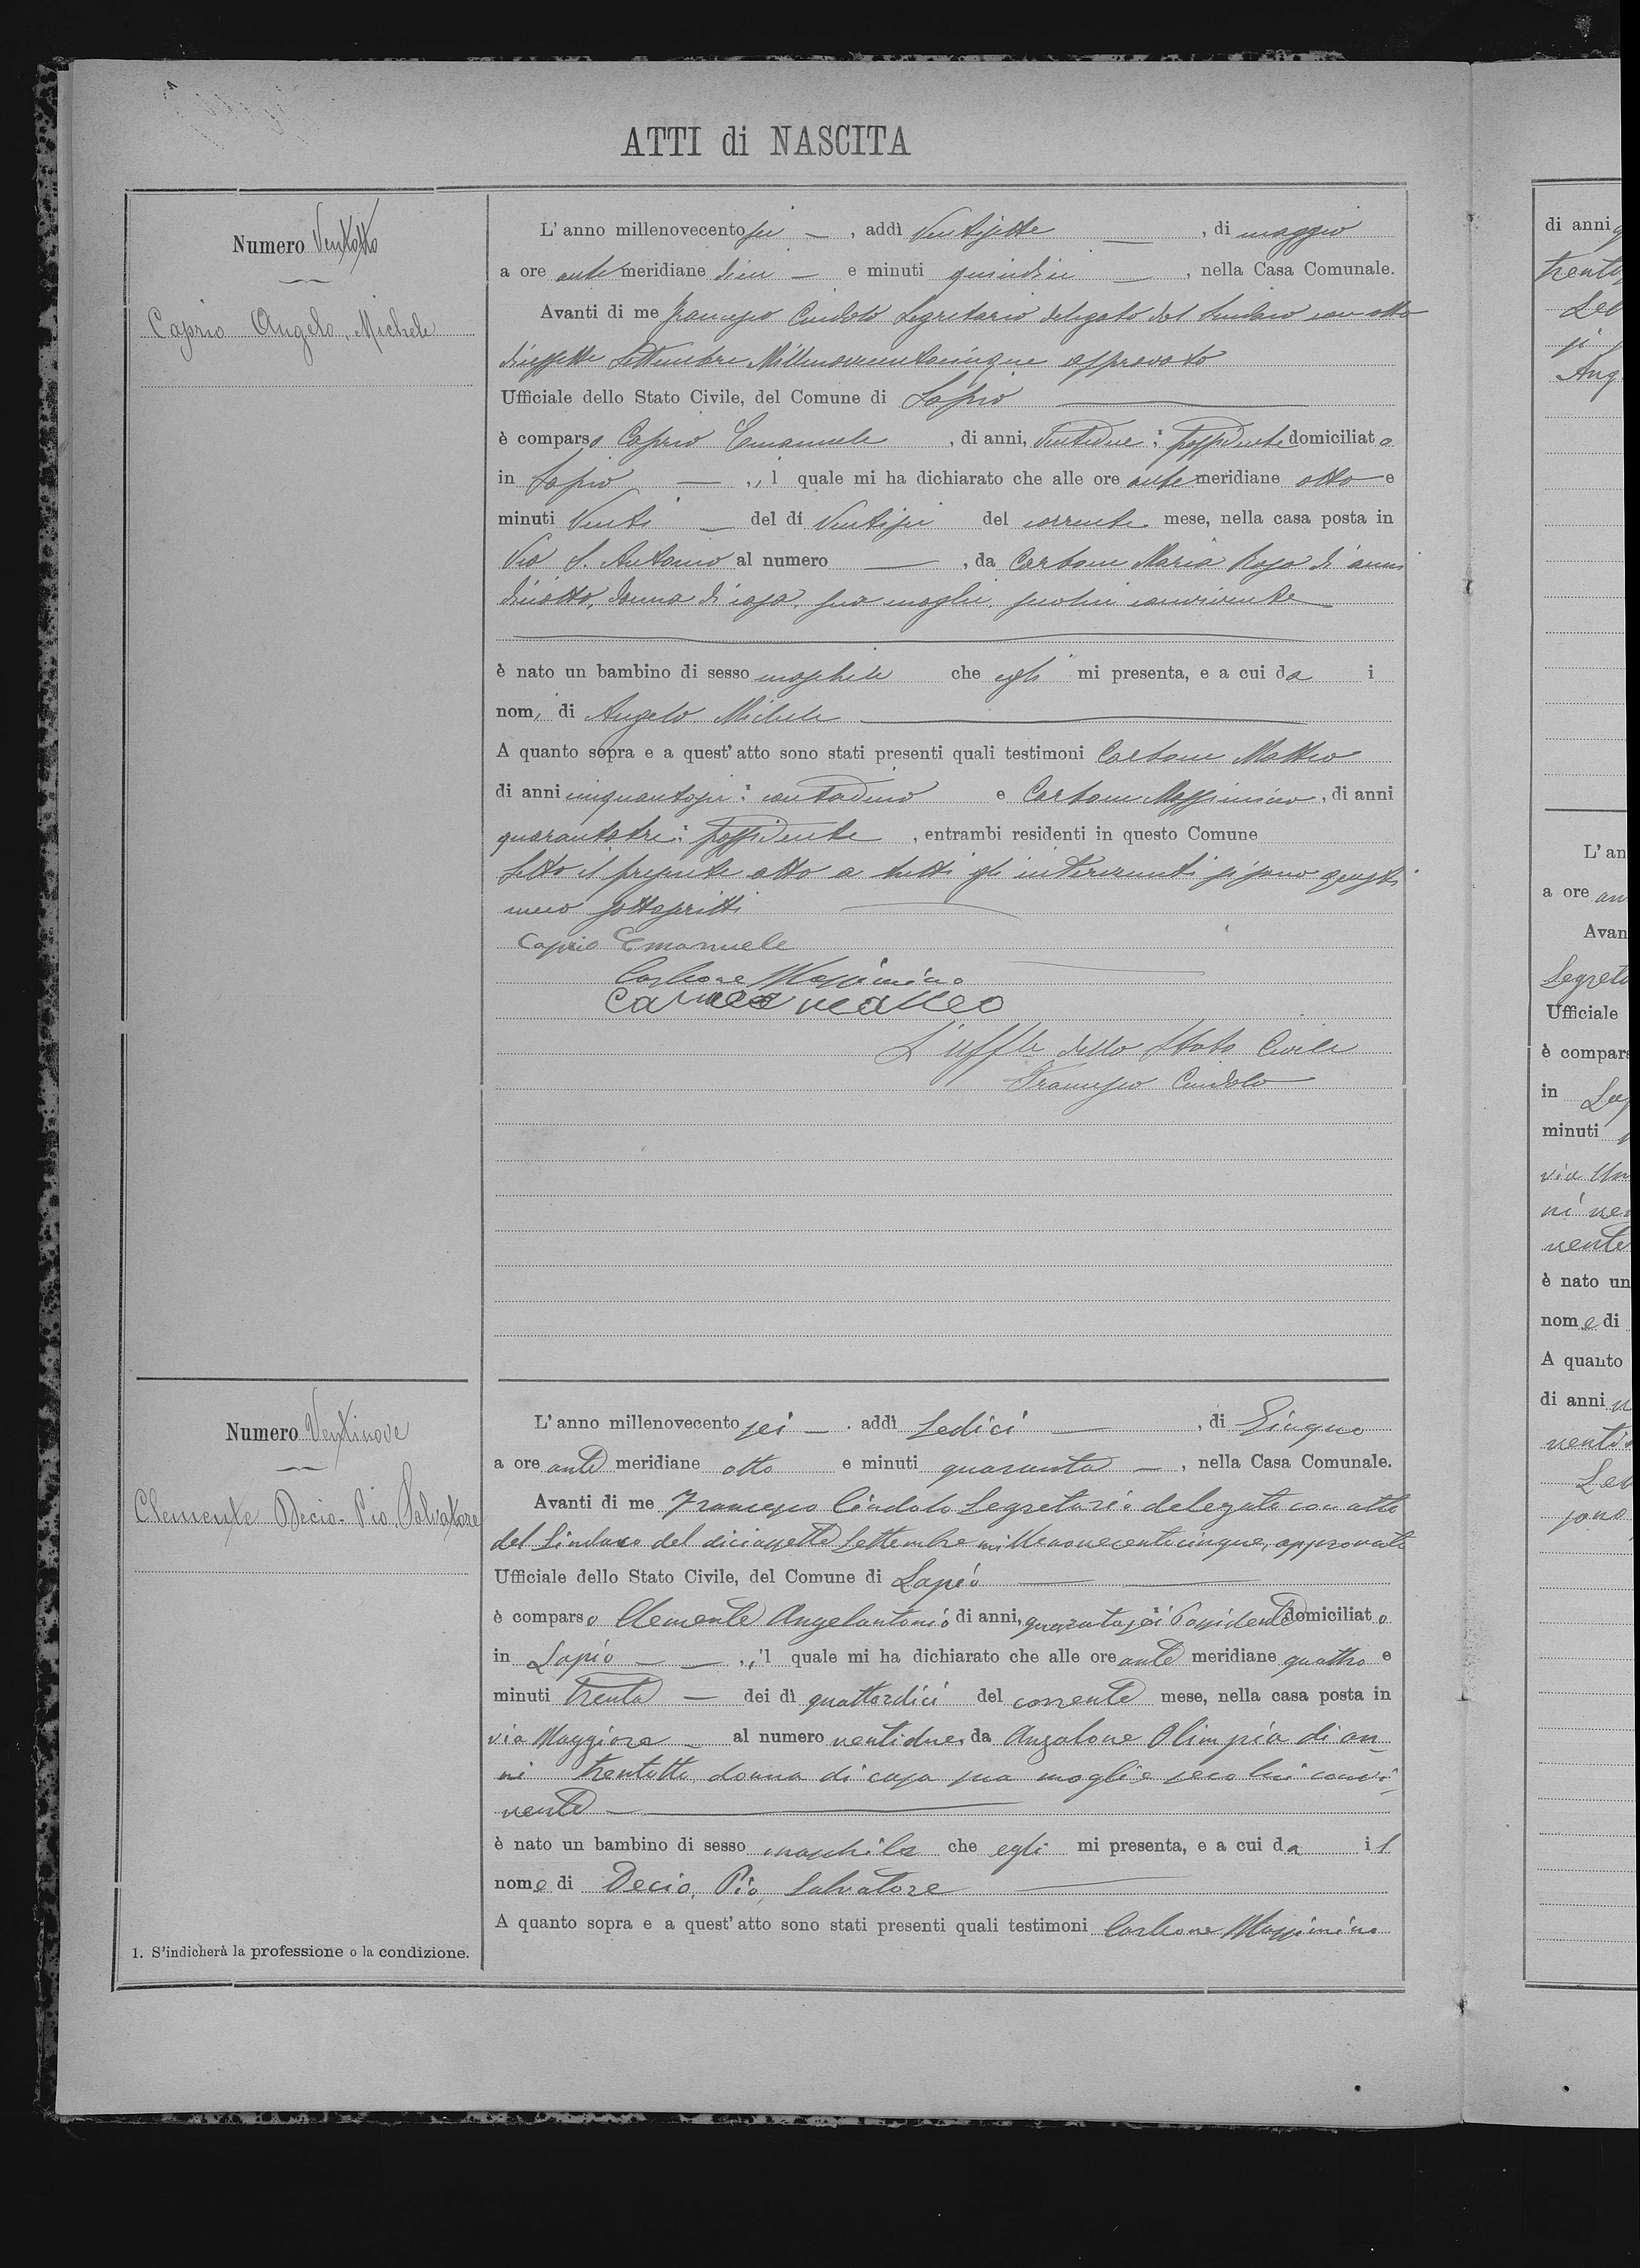 ATTI di NASCITA
Numero Ventotto
Caprio Angelo, Michele
L'anno millenovecento sei — , addì Ventisette — , di maggio
a ore antemeridiane dieci — e minuti quindici — , nella Casa Comunale.
Avanti di me Francesco Cindolo Segretario delegato dal Sindaco con atto
diciassette Settembre Millenovecentocinque approvato
Ufficiale dello Stato Civile, del Comune di Lapio —
è comparso Caprio Emanuele , di anni, Ventidue: possidente domiciliato
in Lapio — , il quale mi ha dichiarato che alle ore antemeridiane otto e
minuti Venti — del dì Ventisei del corrente mese, nella casa posta in
Via S. Antonio al numero — , da Carbone Maria Rosa di anni
diciotto, donna di casa, sua moglie, secolui convivente —
è nato un bambino di sesso maschile che egli mi presenta, e a cui da i
nomi di Angelo Michele —
A quanto sopra e a quest'atto sono stati presenti quali testimoni Carbone Matteo
di anni cinquantasei: contadino e Carbone Massimino, di anni
quarantatre: possidente , entrambi residenti in questo Comune
Letto il presente atto a tutti gli intervenuti si sono questi
meco sottoscritti
Caprio Emanuele
Carbone Massimino
Carbone Matteo
L'uffle dello Stato Civile
Francesco Cindolo
Numero Ventinove
Clemente Decio-Pio, Salvatore
L'anno millenovecento sei — . addì Sedici — , di Giugno
a ore ante meridiane otto e minuti quaranta — , nella Casa Comunale.
Avanti di me Francesco Cindolo Segretario delegato con atto
del Sindaco del diciassette Settembre millenovecentocinque, approvato
Ufficiale dello Stato Civile, del Comune di Lapio — —
è comparso Clemente Angelantonio di anni, quarantasei Possidente domiciliato
in Lapio — — , il quale mi ha dichiarato che alle ore ante meridiane quattro e
minuti trenta — dei dì quattordici del corrente mese, nella casa posta in
via Maggiore — al numero ventidue, da Anzalone Olimpia di an-
ni trentotto, donna di casa sua moglie seco lui convi-
vente —
è nato un bambino di sesso maschile che egli mi presenta, e a cui da il
nome di Decio, Pio, Salvatore —
A quanto sopra e a quest'atto sono stati presenti quali testimoni Carbone Massimino
1. S'indicherà la professione o la condizione.
di anni
trenta
Let
si
Ang
L'an
a ore an
Avan
Segreta
Ufficiale
è compars
in Lap
minuti
via Um
ni ven
vente
è nato un
nome di
A quanto
di anni
venti
Let
sono